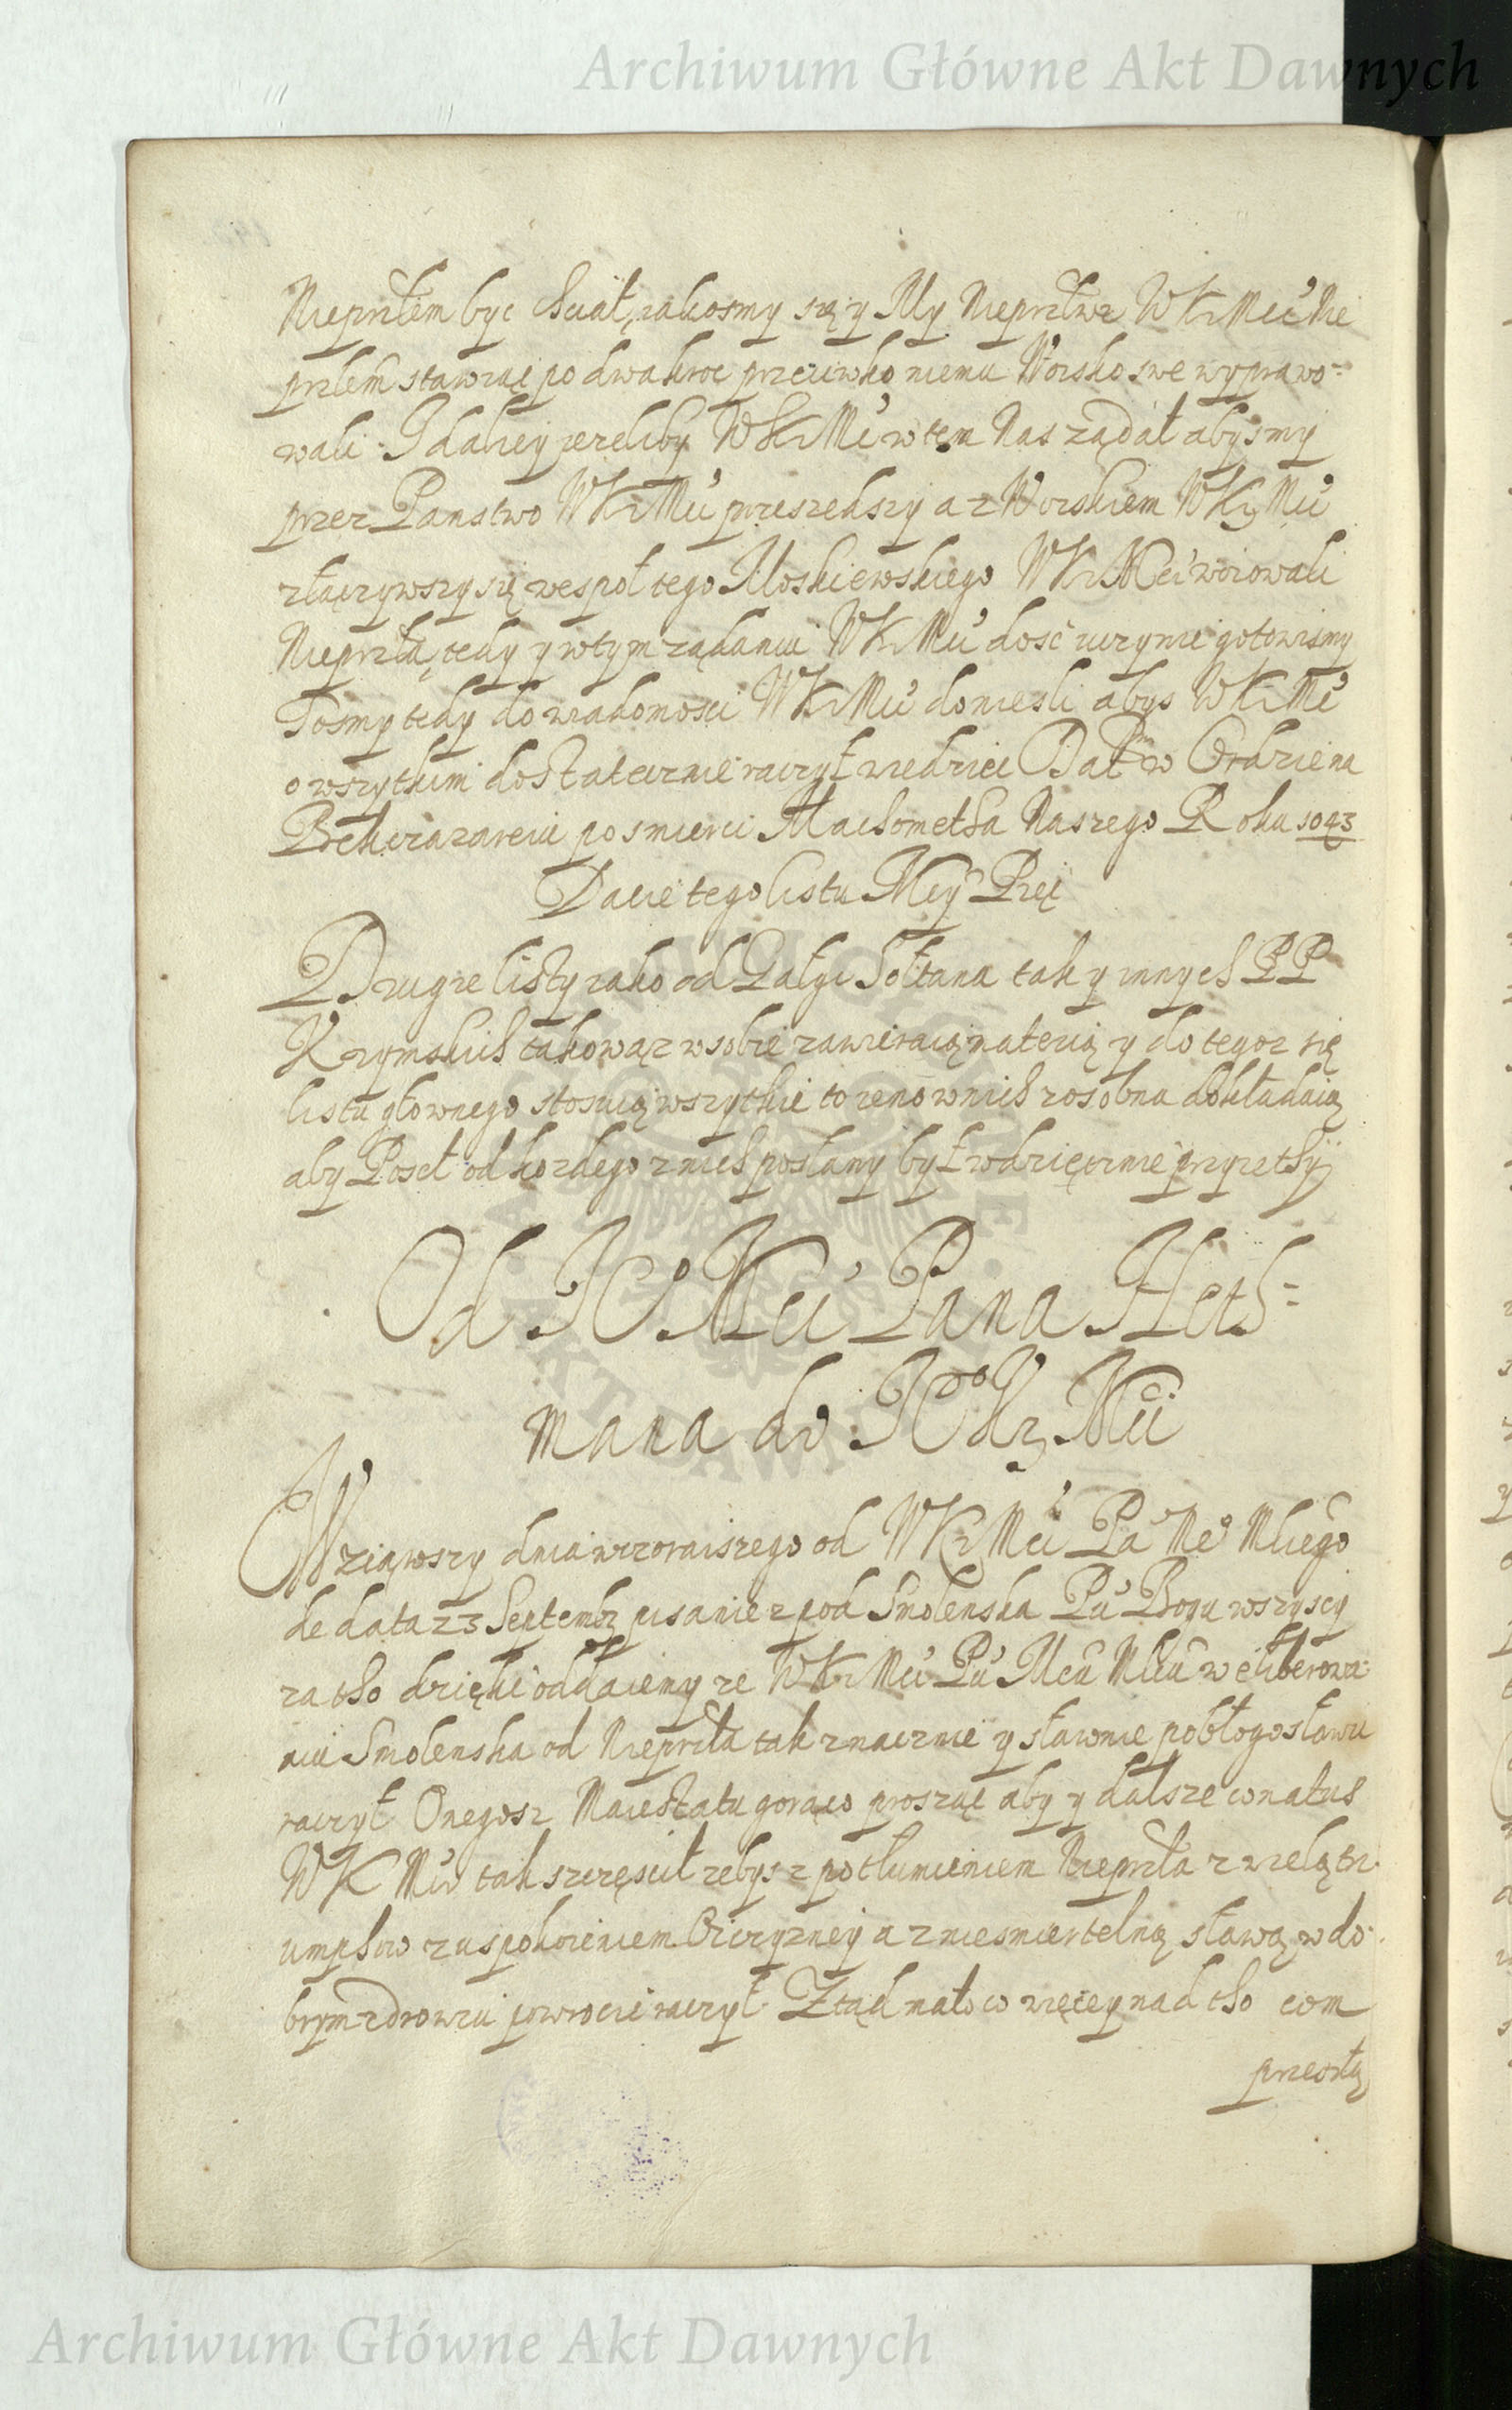 Archiwum Główne Akt Dawnych
Nieprzłem byc chciał, jakosmy się y My Nieprzłwi WKrMci Nie
przłem stawiaić po dwakroc przeciwko niemu Woisko swe wyprawo-
wali. I daliey jezeliby WKrMć w tem Nas ządał abysmy
przez Panstwo WKrMci przeszedszy a z Woiskiem WKrMci
złączywszy się wespoł tego Moskiewskiego WKrMci woiowali
Nieprzła, tedy y w tym ządaniu WKrMci dosć uczynić gotowismy
Tosmy tedy do wiadomosci WKrMci doniesli abys WKrMć
o wszytkim dostatecznie raczył wiedziec Dat w Ordzie na
po smierci Machometha Naszego Roku 1043
Dacie tego listu
Drugie listy jako od Gałgi Sołtana tak y innych PP
Krymskich takowąz w sobie zawieraią materią y do tegoz się
listu głownego stosuią wszytkie to jeno w nich zosobna dokładaią
aby Poseł od kozdego z nich posłany był wdzięcznie przyięthy
Od JO Mci Pana Heth-
mana do JoKr Mci
Wziąwszy dnia wczoraiszego od WKrMci Pa Meo Młciego
de data 23 Septembr pisanie z pod Smolenska Pu Bogu wszyscy
za tho dzięki oddaiemy ze WKrMci Pu Mcu Młcu w eliberowa-
niu Smolenska od Nieprzła tak znacznie y sławnie pobłogosławic
raczył Onegosz Maiestatu gorąco prosząc aby y dalsze conatus
WK Mci tak szczęscił zebys z potłumieniem Nieprzła z wielą tri-
umphow z uspokoieniem Oiczyzney a z niesmiertelną sławą w do-
brym zdrowiu powrocic raczył. Ztąd mało co więcey nad tho com
przeszłą
Archiwum Główne Akt Dawnych